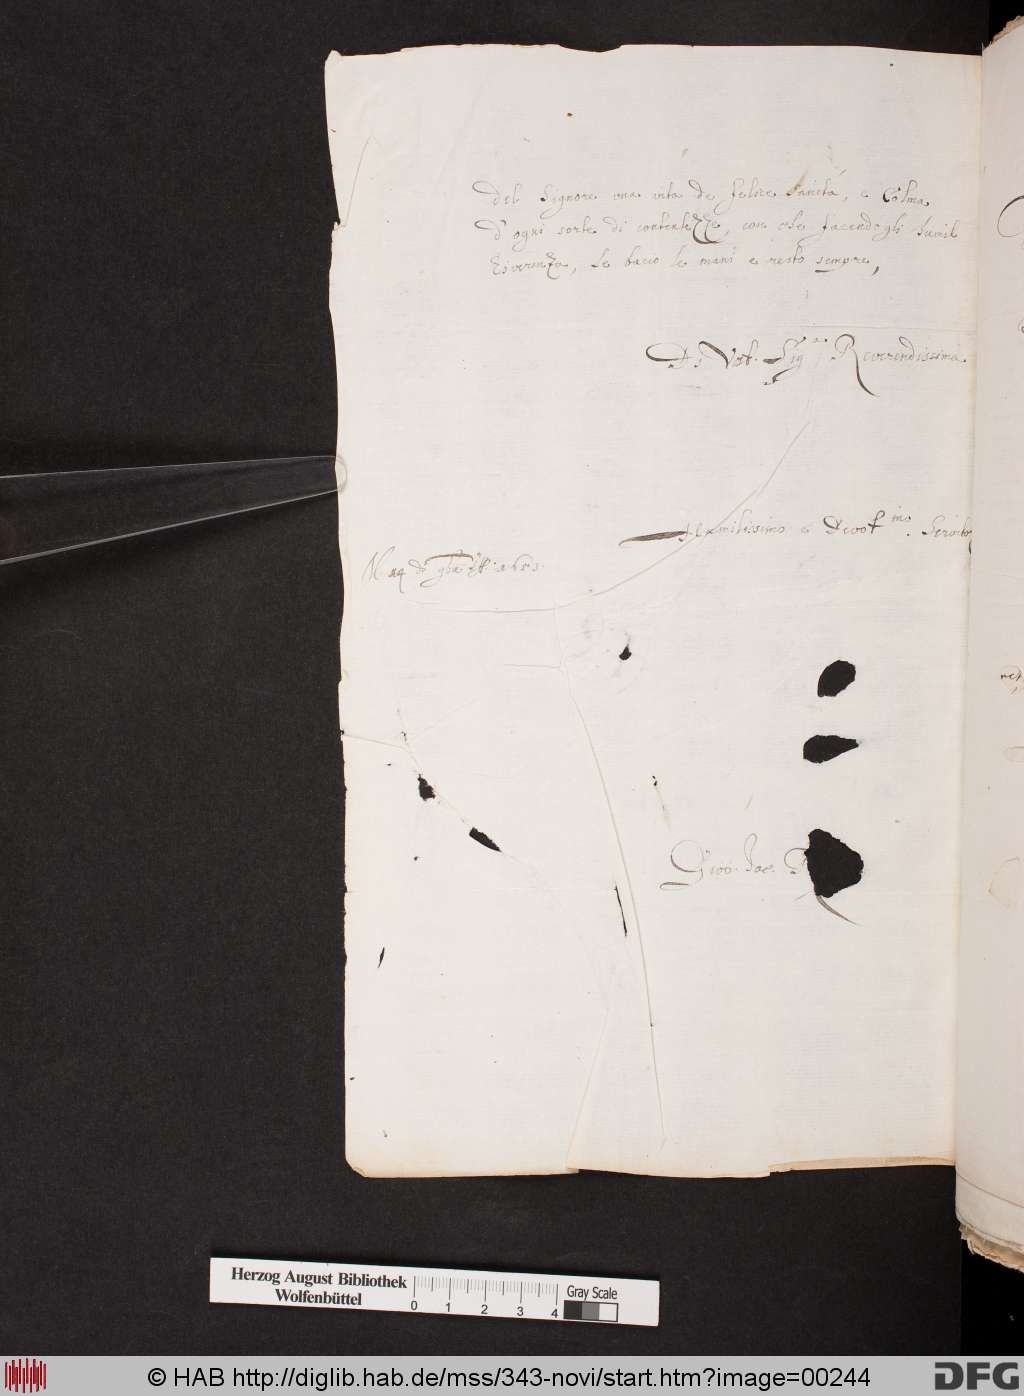 del Signore una vita de felice sanità, e Colma
d'ogni sorte di contentezze, con che facendogli humil
riverenza, le bacio le mani e resto sempre,
Di Vost. Sig.ria Reverendissima
Humilissimo e Devot.mo Servitor
Gioo. Jac.
Herzog August Bibliothek
Wolfenbüttel
0 1 2 3 4
Gray Scale
© HAB http://diglib.hab.de/mss/343-novi/start.htm?image=00244
DFG